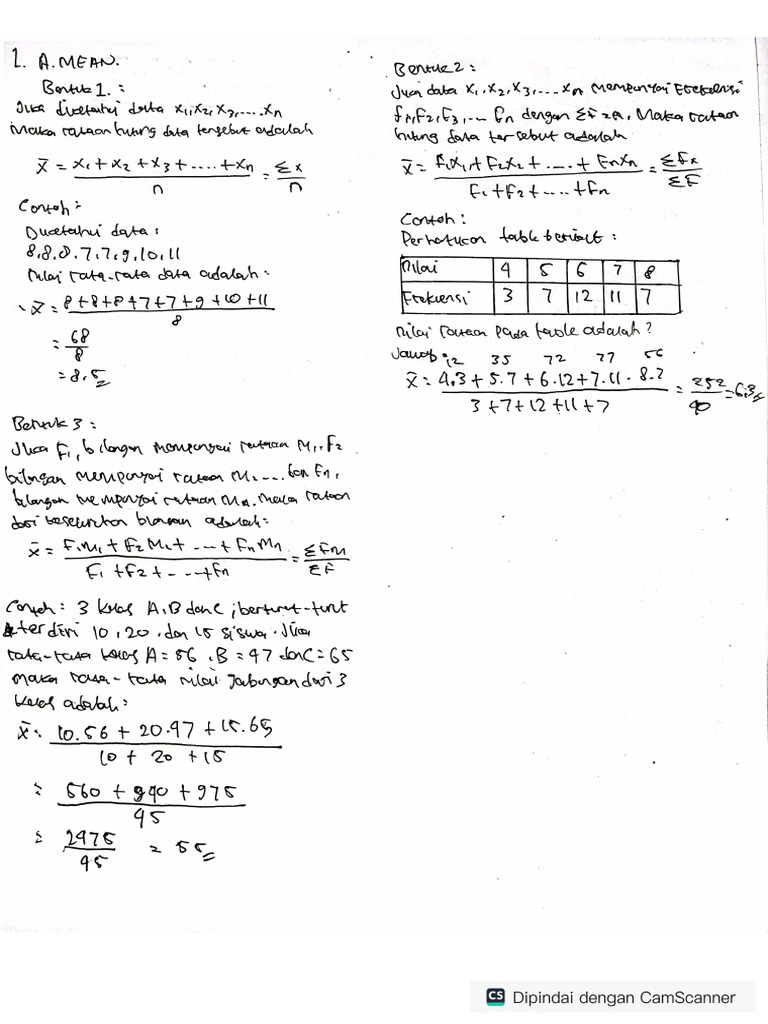 1. A. MEAN.
Bentuk 1. :
Jika diketahui data x₁, x₂, x₃, .... xn
maka rataan hitung data tersebut adalah
x̄ = x₁ + x₂ + x₃ + .... + xn / n = Σx / n
Contoh :
Diketahui data :
8, 8, 8, 7, 7, 9, 10, 11
Nilai rata-rata data adalah :
x̄ = 8 + 8 + 8 + 7 + 7 + 9 + 10 + 11 / 8
= 68 / 8
= 8,5
Bentuk 3 :
Jika F₁, bilangan mempunyai rataan M₁, F₂
bilangan mempunyai rataan M₂ .... dan Fn,
bilangan mempunyai rataan Mn. maka rataan
dari keseluruhan bilangan adalah :
x̄ = F₁M₁ + F₂M₂ + ... + FnMn / F₁ + F₂ + ... + Fn = ΣFM / ΣF
Contoh : 3 kelas A, B dan C ; berturut-turut
terdiri 10, 20, dan 15 siswa. Jika
rata-rata kelas A = 56, B = 47 dan C = 65
maka rata-rata nilai gabungan dari 3
kelas adalah :
x̄ = 10.56 + 20.47 + 15.65 / 10 + 20 + 15
= 560 + 940 + 975 / 45
= 2475 / 45 = 55
Bentuk 2 :
Jika data x₁, x₂, x₃, .... xn mempunyai Frekuensi
f₁, F₂, F₃, ... fn dengan ΣF = n, Maka rataan
hitung data tersebut adalah
x̄ = F₁x₁ + F₂x₂ + .... + Fnxn / F₁ + F₂ + .... + Fn = ΣFx / ΣF
Contoh :
Perhatikan table berikut :
Nilai 4 5 6 7 8
Frekuensi 3 7 12 11 7
Nilai rataan pada table adalah ?
Jawab : 12 35 72 77 56
x̄ = 4.3 + 5.7 + 6.12 + 7.11 . 8.7 / 3 + 7 + 12 + 11 + 7 = 252 / 40 = 6,3
CS Dipindai dengan CamScanner